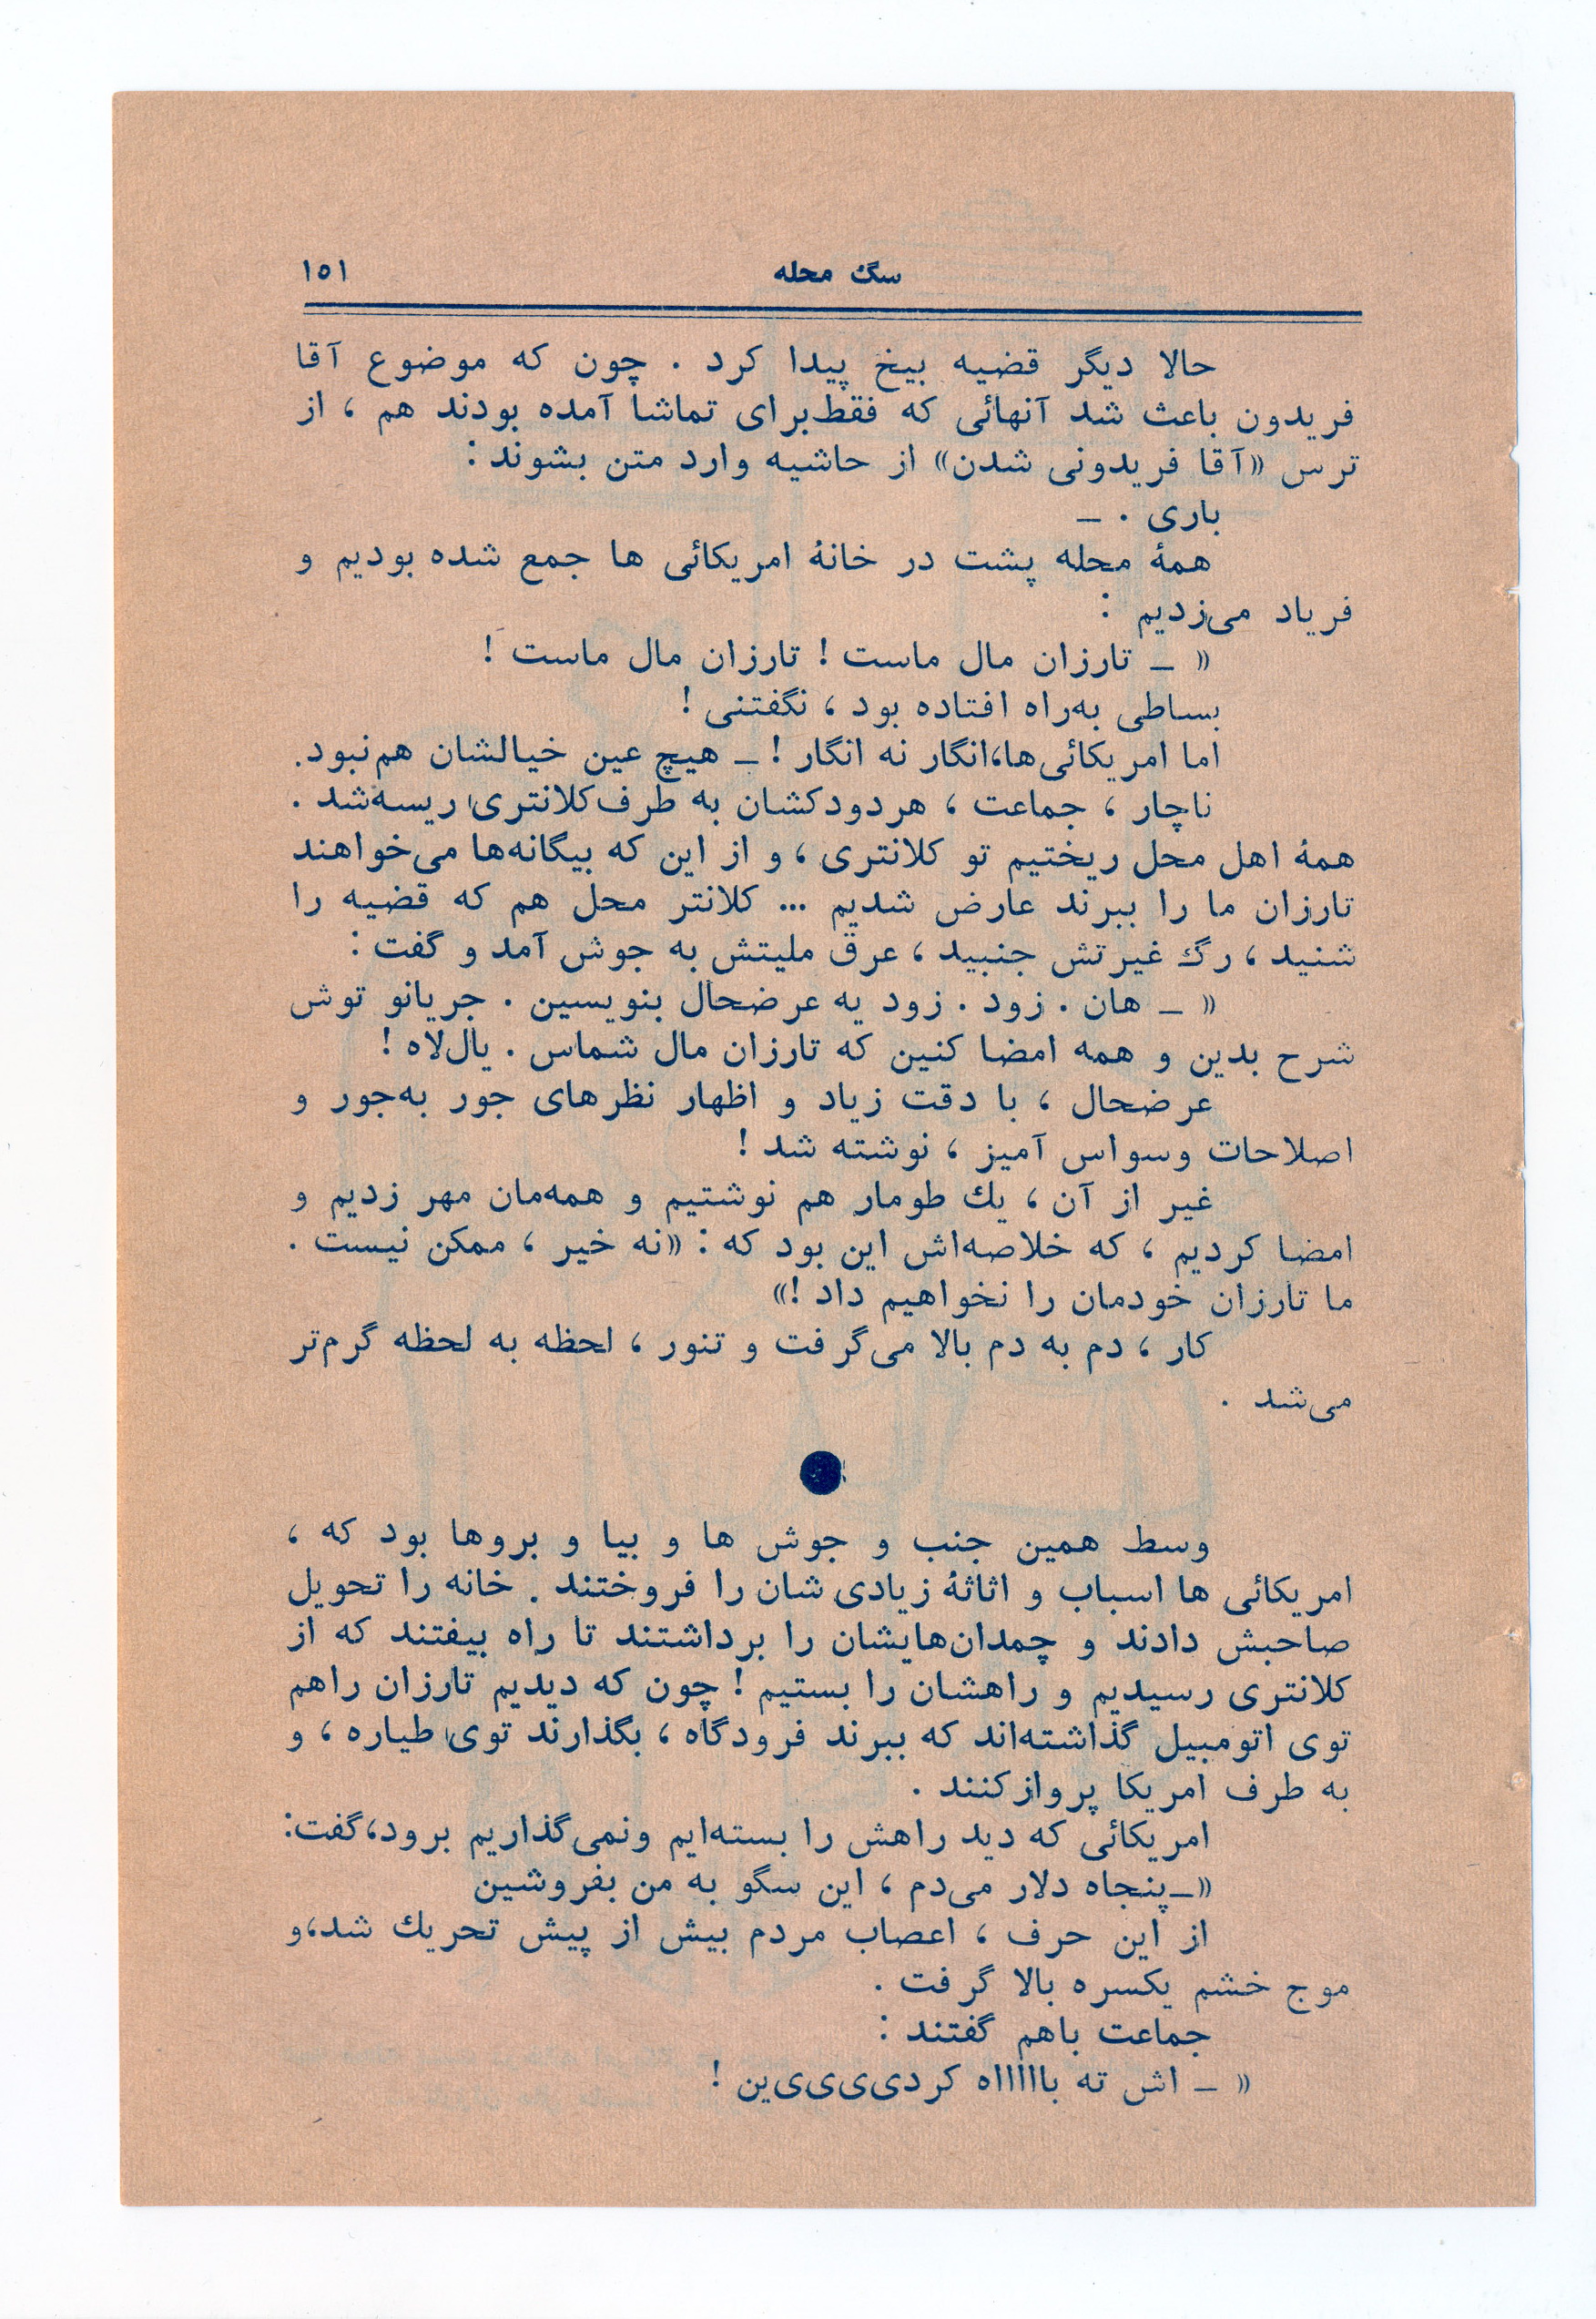 سگ محله
۱۵۱
حالا دیگر قضیه بیخ پیدا کرد . چون که موضوع آقا
فریدون باعث شد آنهائی که فقط برای تماشا آمده بودند هم ، از
ترس «آقا فریدونی شدن» از حاشیه وارد متن بشوند :
باری . ـ
همهٔ محله پشت در خانهٔ امریکائی ها جمع شده بودیم و
فریاد می‌زدیم :
« ـ تارزان مال ماست ! تارزان مال ماست !
بساطی به‌راه افتاده بود ، نگفتنی !
اما امریکائی‌ها،انگار نه انگار ! ـ هیچ عین خیالشان هم‌نبود.
ناچار ، جماعت ، هردودکشان به طرف‌کلانتری ریسه‌شد .
همهٔ اهل محل ریختیم تو کلانتری ، و از این که بیگانه‌ها می‌خواهند
تارزان ما را ببرند عارض شدیم ... کلانتر محل هم که قضیه را
شنید ، رگ غیرتش جنبید ، عرق ملیتش به جوش آمد و گفت :
« ـ هان . زود . زود یه عرضحال بنویسین . جریانو توش
شرح بدین و همه امضا کنین که تارزان مال شماس . یال‌لاه !
عرضحال ، با دقت زیاد و اظهار نظرهای جور به‌جور و
اصلاحات وسواس آمیز ، نوشته شد !
غیر از آن ، یك طومار هم نوشتیم و همه‌مان مهر زدیم و
امضا کردیم ، که خلاصه‌اش این بود که : «نه خیر ، ممکن نیست .
ما تارزان خودمان را نخواهیم داد !»
کار ، دم به دم بالا می‌گرفت و تنور ، لحظه به لحظه گرم‌تر
می‌شد .
وسط همین جنب و جوش ها و بیا و بروها بود که ،
امریکائی ها اسباب و اثاثهٔ زیادی‌شان را فروختند . خانه را تحویل
صاحبش دادند و چمدان‌هایشان را برداشتند تا راه بیفتند که از
کلانتری رسیدیم و راهشان را بستیم ! چون که دیدیم تارزان راهم
توی اتومبیل گذاشته‌اند که ببرند فرودگاه ، بگذارند توی طیاره ، و
به طرف امریکا پروازکنند .
امریکائی که دید راهش را بسته‌ایم ونمی‌گذاریم برود،گفت:
«ـ پنجاه دلار می‌دم ، این سگو به من بفروشین
از این حرف ، اعصاب مردم بیش از پیش تحریك شد،و
موج خشم یکسره بالا گرفت .
جماعت باهم گفتند :
« ـ اش ته بااااااه کردی‌ی‌ی‌ی‌ین !